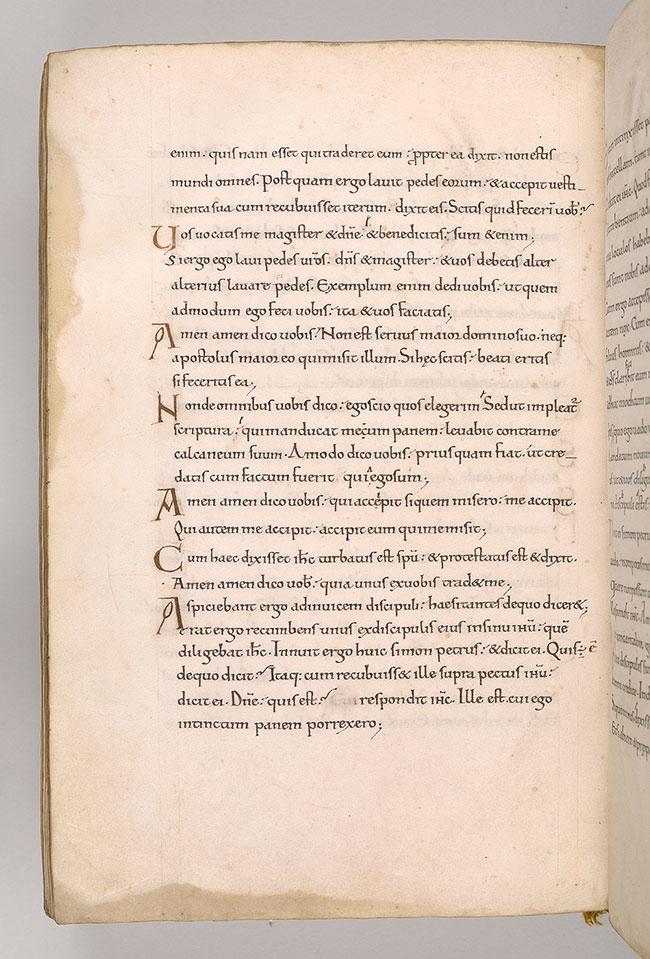 enim· quis nam esset qui traderet eum· ꝓpter ea dixit· non estis
mundi omnes· Post quam ergo lavit pedes eorum· & accepit vesti-
menta sua cum recubuisset iterum· dixit eis· Scitis quid fecerim vob·
Vos vocatis me magister & dñe· & bene dicitis· sum & enim;
Si ergo ego lavi pedes vr̃os· dñs & magister· & vos debetis alter
alterius lavare pedes· Exemplum enim dedi vobis· ut quem
admodum ego feci vobis· ita & vos faciatis;
Amen amen dico vobis· Non est servus maior domino suo· neq:
apostolus maior eo qui misit illum· Si hęc scitis· beati eritis
si feceritis ea;
Non de omnibus vobis dico· ego scio quos elegerim· Sed ut impleat᷑
scriptura· qui manducat mecum panem· levabit contra me
calcaneum suum· A modo dico vobis· prius quam fiat· ut cre-
datis cum factum fuerit qui ego sum;
Amen amen dico vobis· qui accipit si quem misero· me accipit·
Qui autem me accipit· accipit eum qui me misit;
Cum haec dixisset ih̅c turbatus est sp̅u· & protestatus est & dixit·
Amen amen dico vob· quia unus ex vobis trad& me;
Aspiciebant ergo ad invicem discipuli· haesitantes de quo dicer&;
erat ergo recumbens unus ex discipulis eius in sinu ih̅u· quẽ
diligebat ih̅c· Innuit ergo huic simon petrus· & dicit ei· Quis ẽ
de quo dicit· Itaq: cum recubuiss& ille supra pectus ih̅u·
dicit ei· Dñe· quis est· Cui respondit ih̅c· Ille est· cui ego
intinctum panem porrexero;